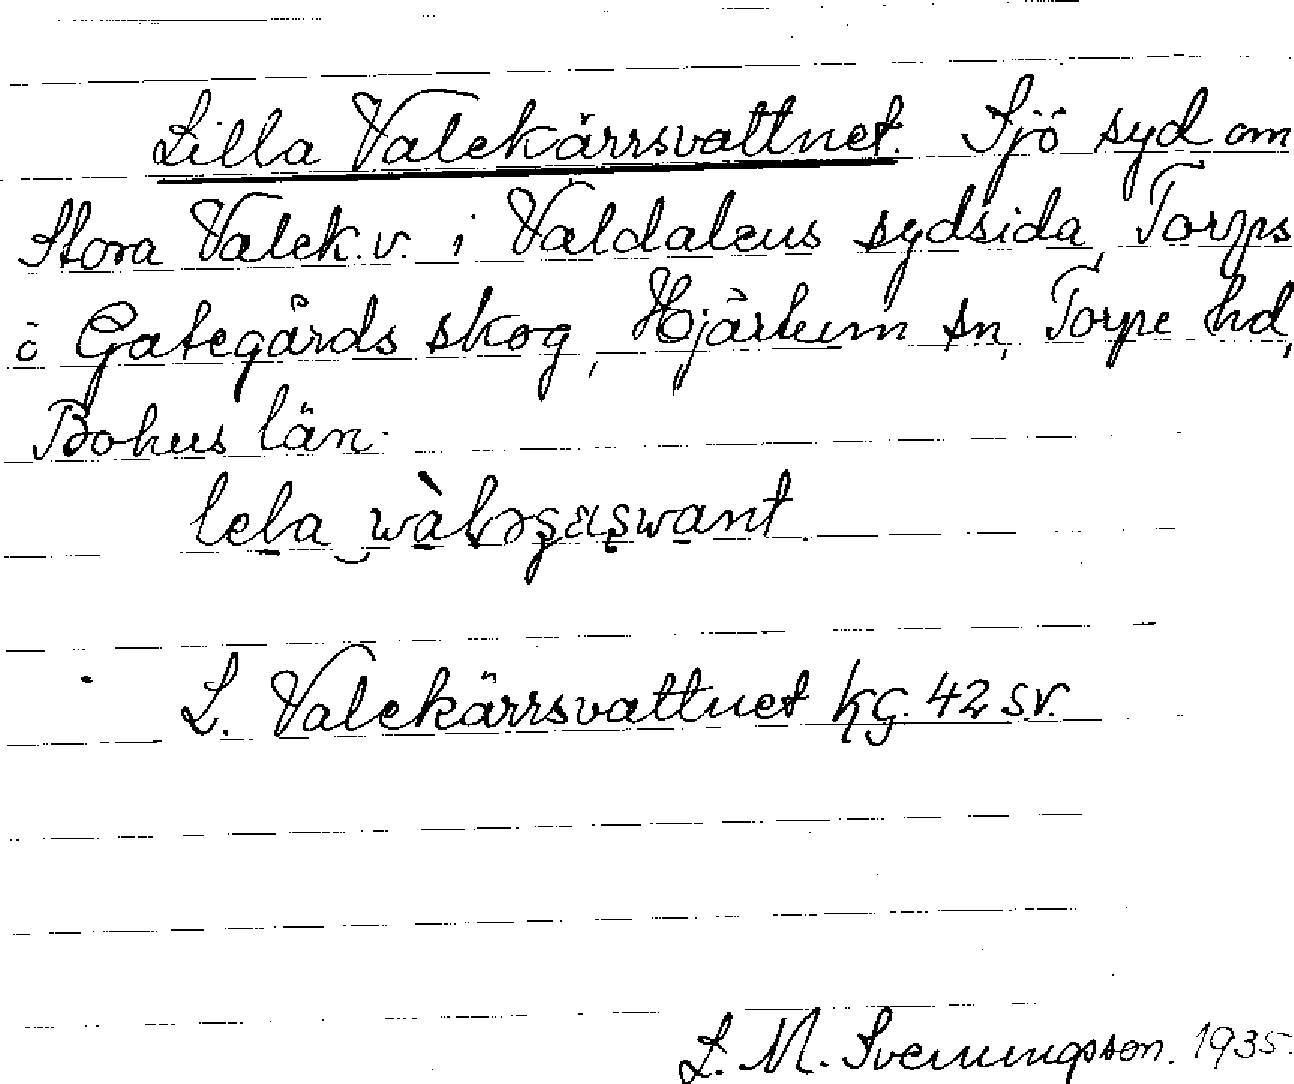 Lilla Valekärrsvattnet. Sjö syd om
Stora Valek.v. i Valdalens sydsida, Torps
ö Gategårds skog, Hjärtum sn, Torpe hd,
Bohus län.
lela
L. Valekärrsvattnet kg. 42 sv.
L. M. Svenungsson. 1935.